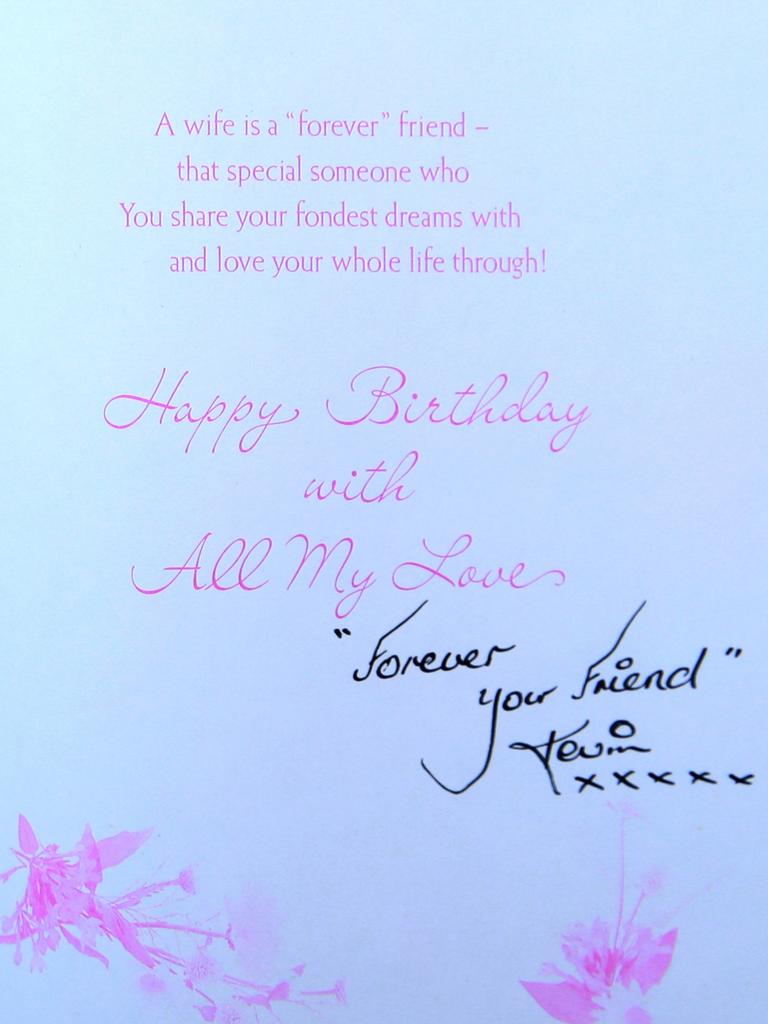 A wife is a “forever” friend –
that special someone who
You share your fondest dreams with
and love your whole life through!
Happy Birthday
with
All My Love
"Forever
your Friend"
Kevin
xxxxx